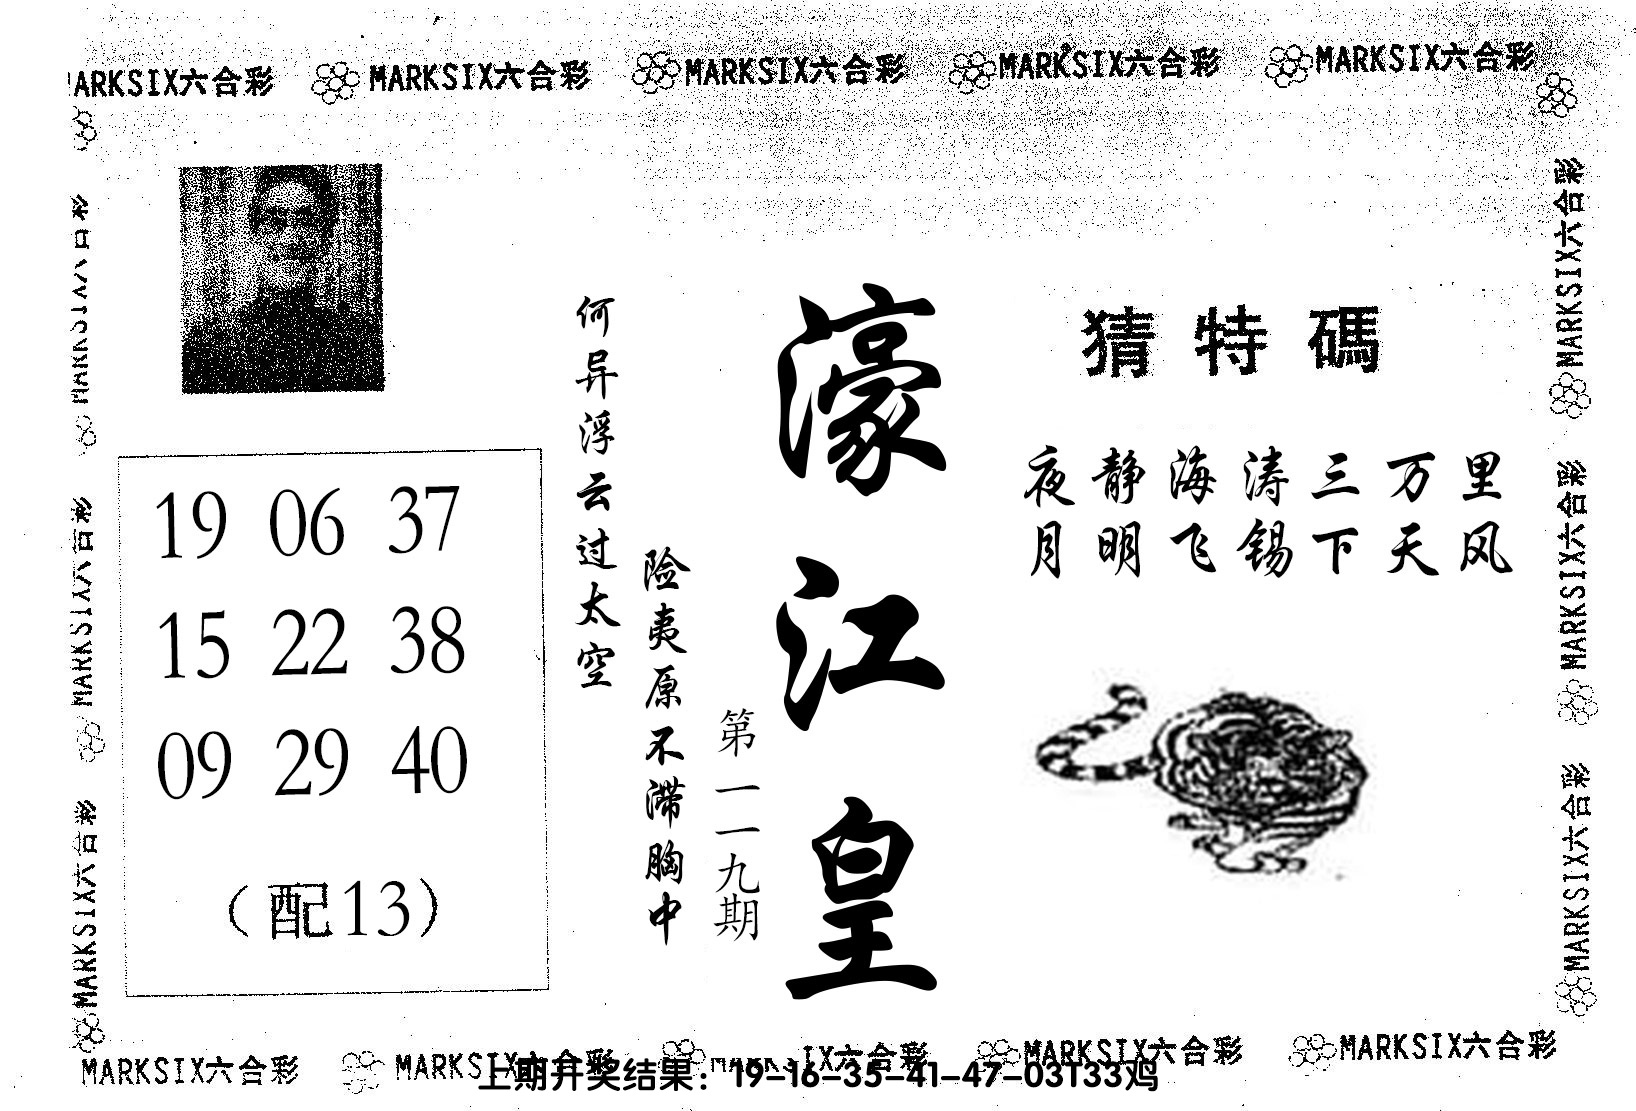 MARKSIX六合彩 MARKSIX六合彩 MARKSIX六合彩 MARKSIX六合彩 MARKSIX六合彩
猜特碼
夜静海涛三万里
月明飞锡下天风
濠江皇
第一一九期
险夷原不滞胸中
何异浮云过太空
19 06 37
15 22 38
09 29 40
（配13）
MARKSIX六合彩
MARKSIX六合彩
MARKSIX六合彩
MARKSIX六合彩
MARKSIX六合彩
MARKSIX六合彩
MARKSIX六合彩 MARKSIX六合彩 MARKSIX六合彩 MARKSIX六合彩 MARKSIX六合彩
上期开奖结果：19-16-35-41-47-03T33鸡